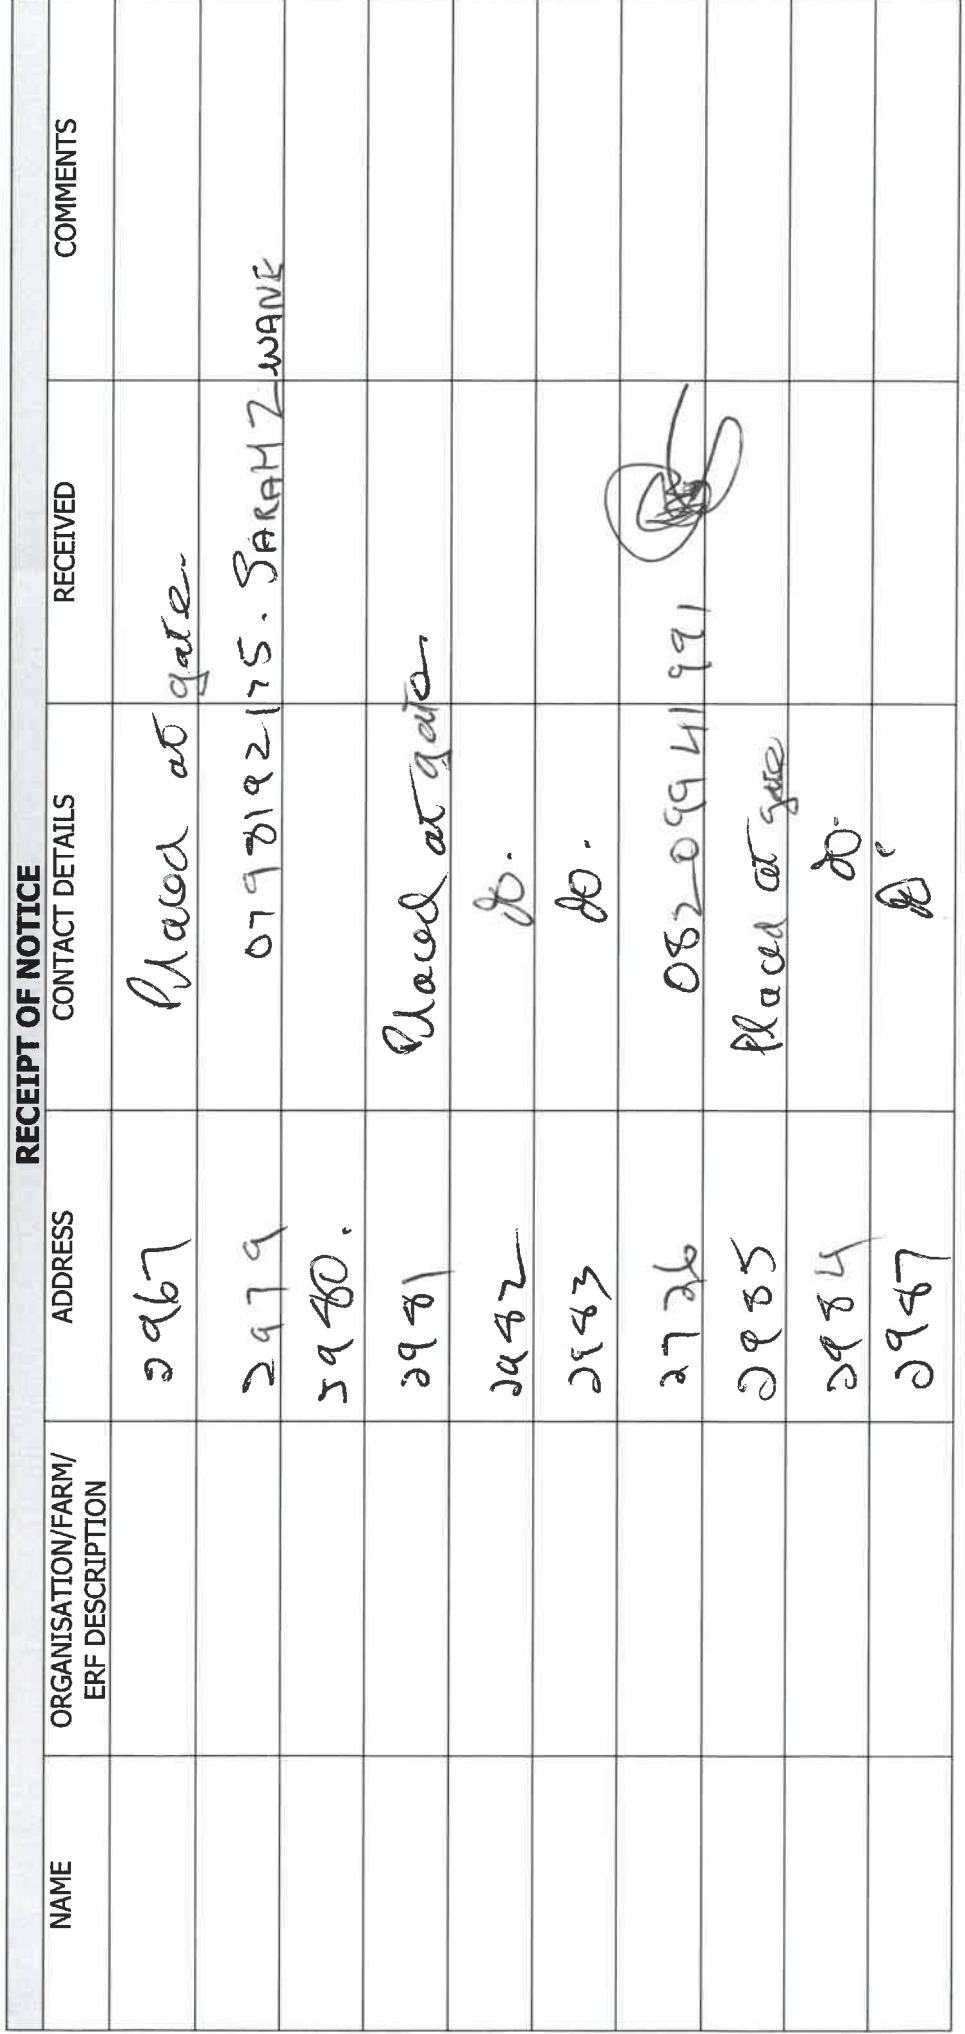 RECEIPT OF NOTICE
NAME ORGANISATION/FARM/ ADDRESS CONTACT DETAILS RECEIVED COMMENTS
ERF DESCRIPTION
2967 Placed at gate.
2979 0798192175. SARAH ZWANE
2980.
2981 Placed at gate
2982 do.
2983 do.
2726 0820994 1991
2985 Placed at gate
2984 do.
2987 do.